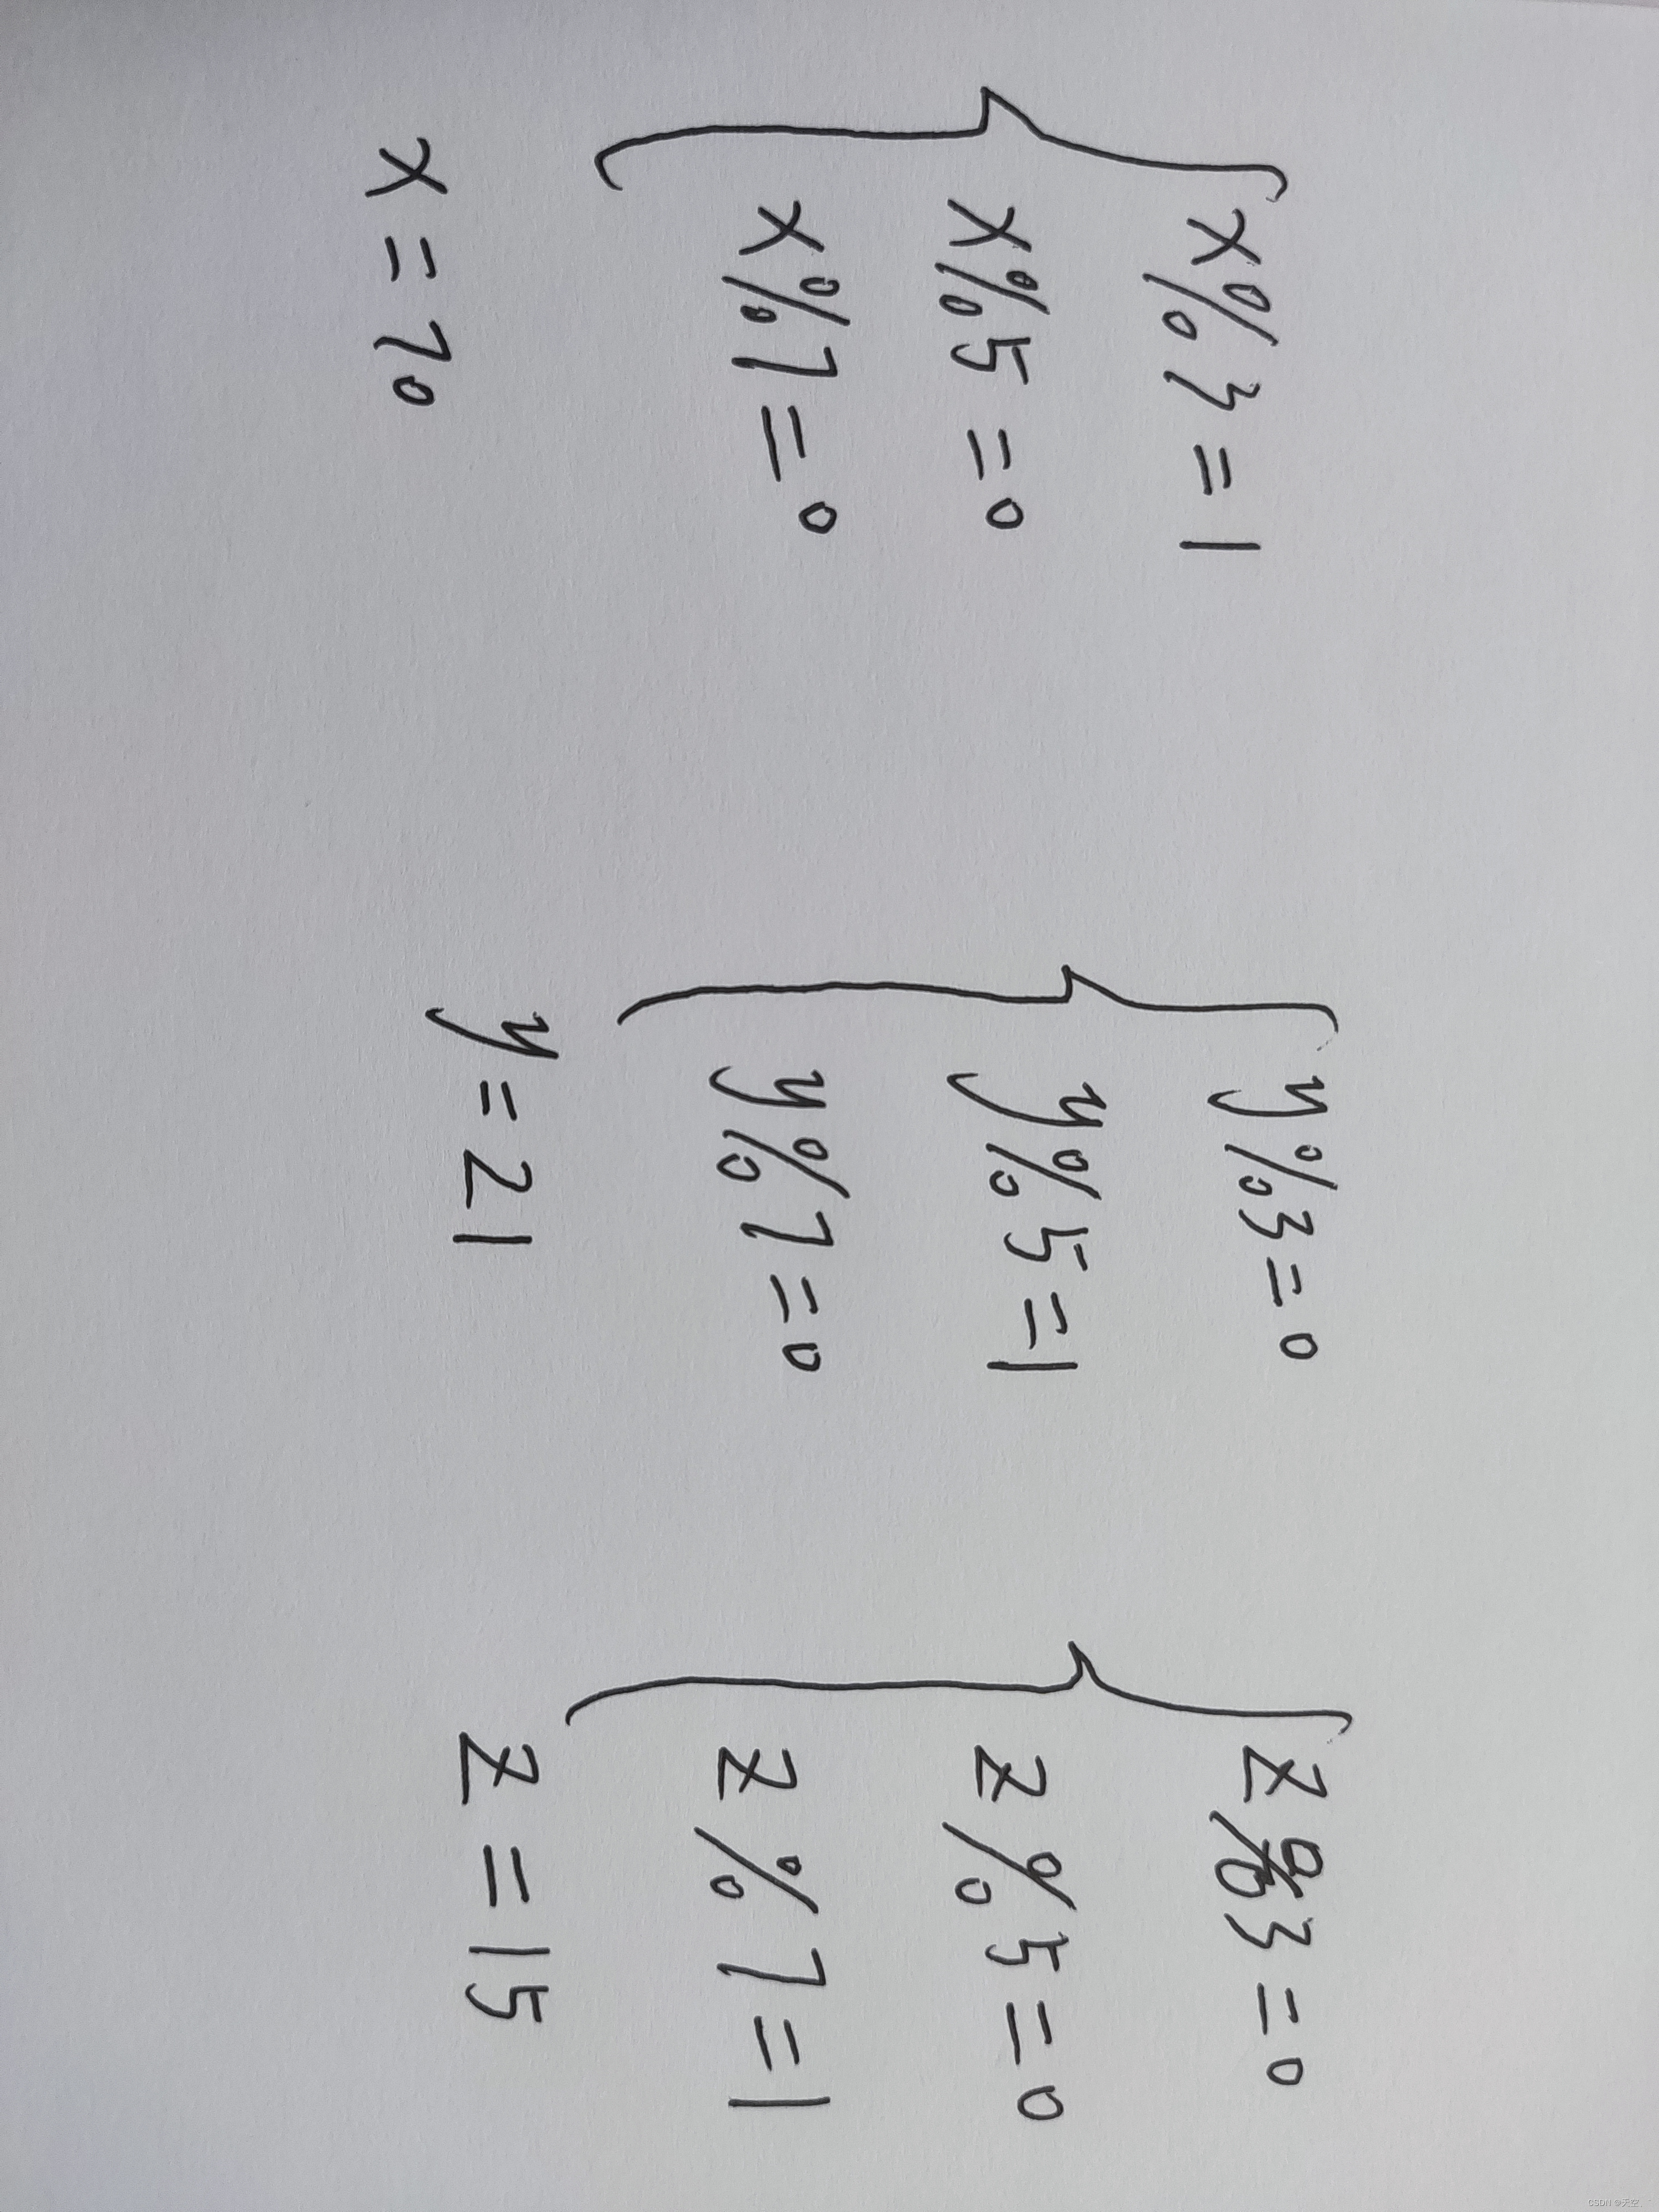 x%3=1
x%5=0
x%7=0
x=70
y%3=0
y%5=1
y%7=0
y=21
z%3=0
z%5=0
z%7=1
z=15
CSDN @天空